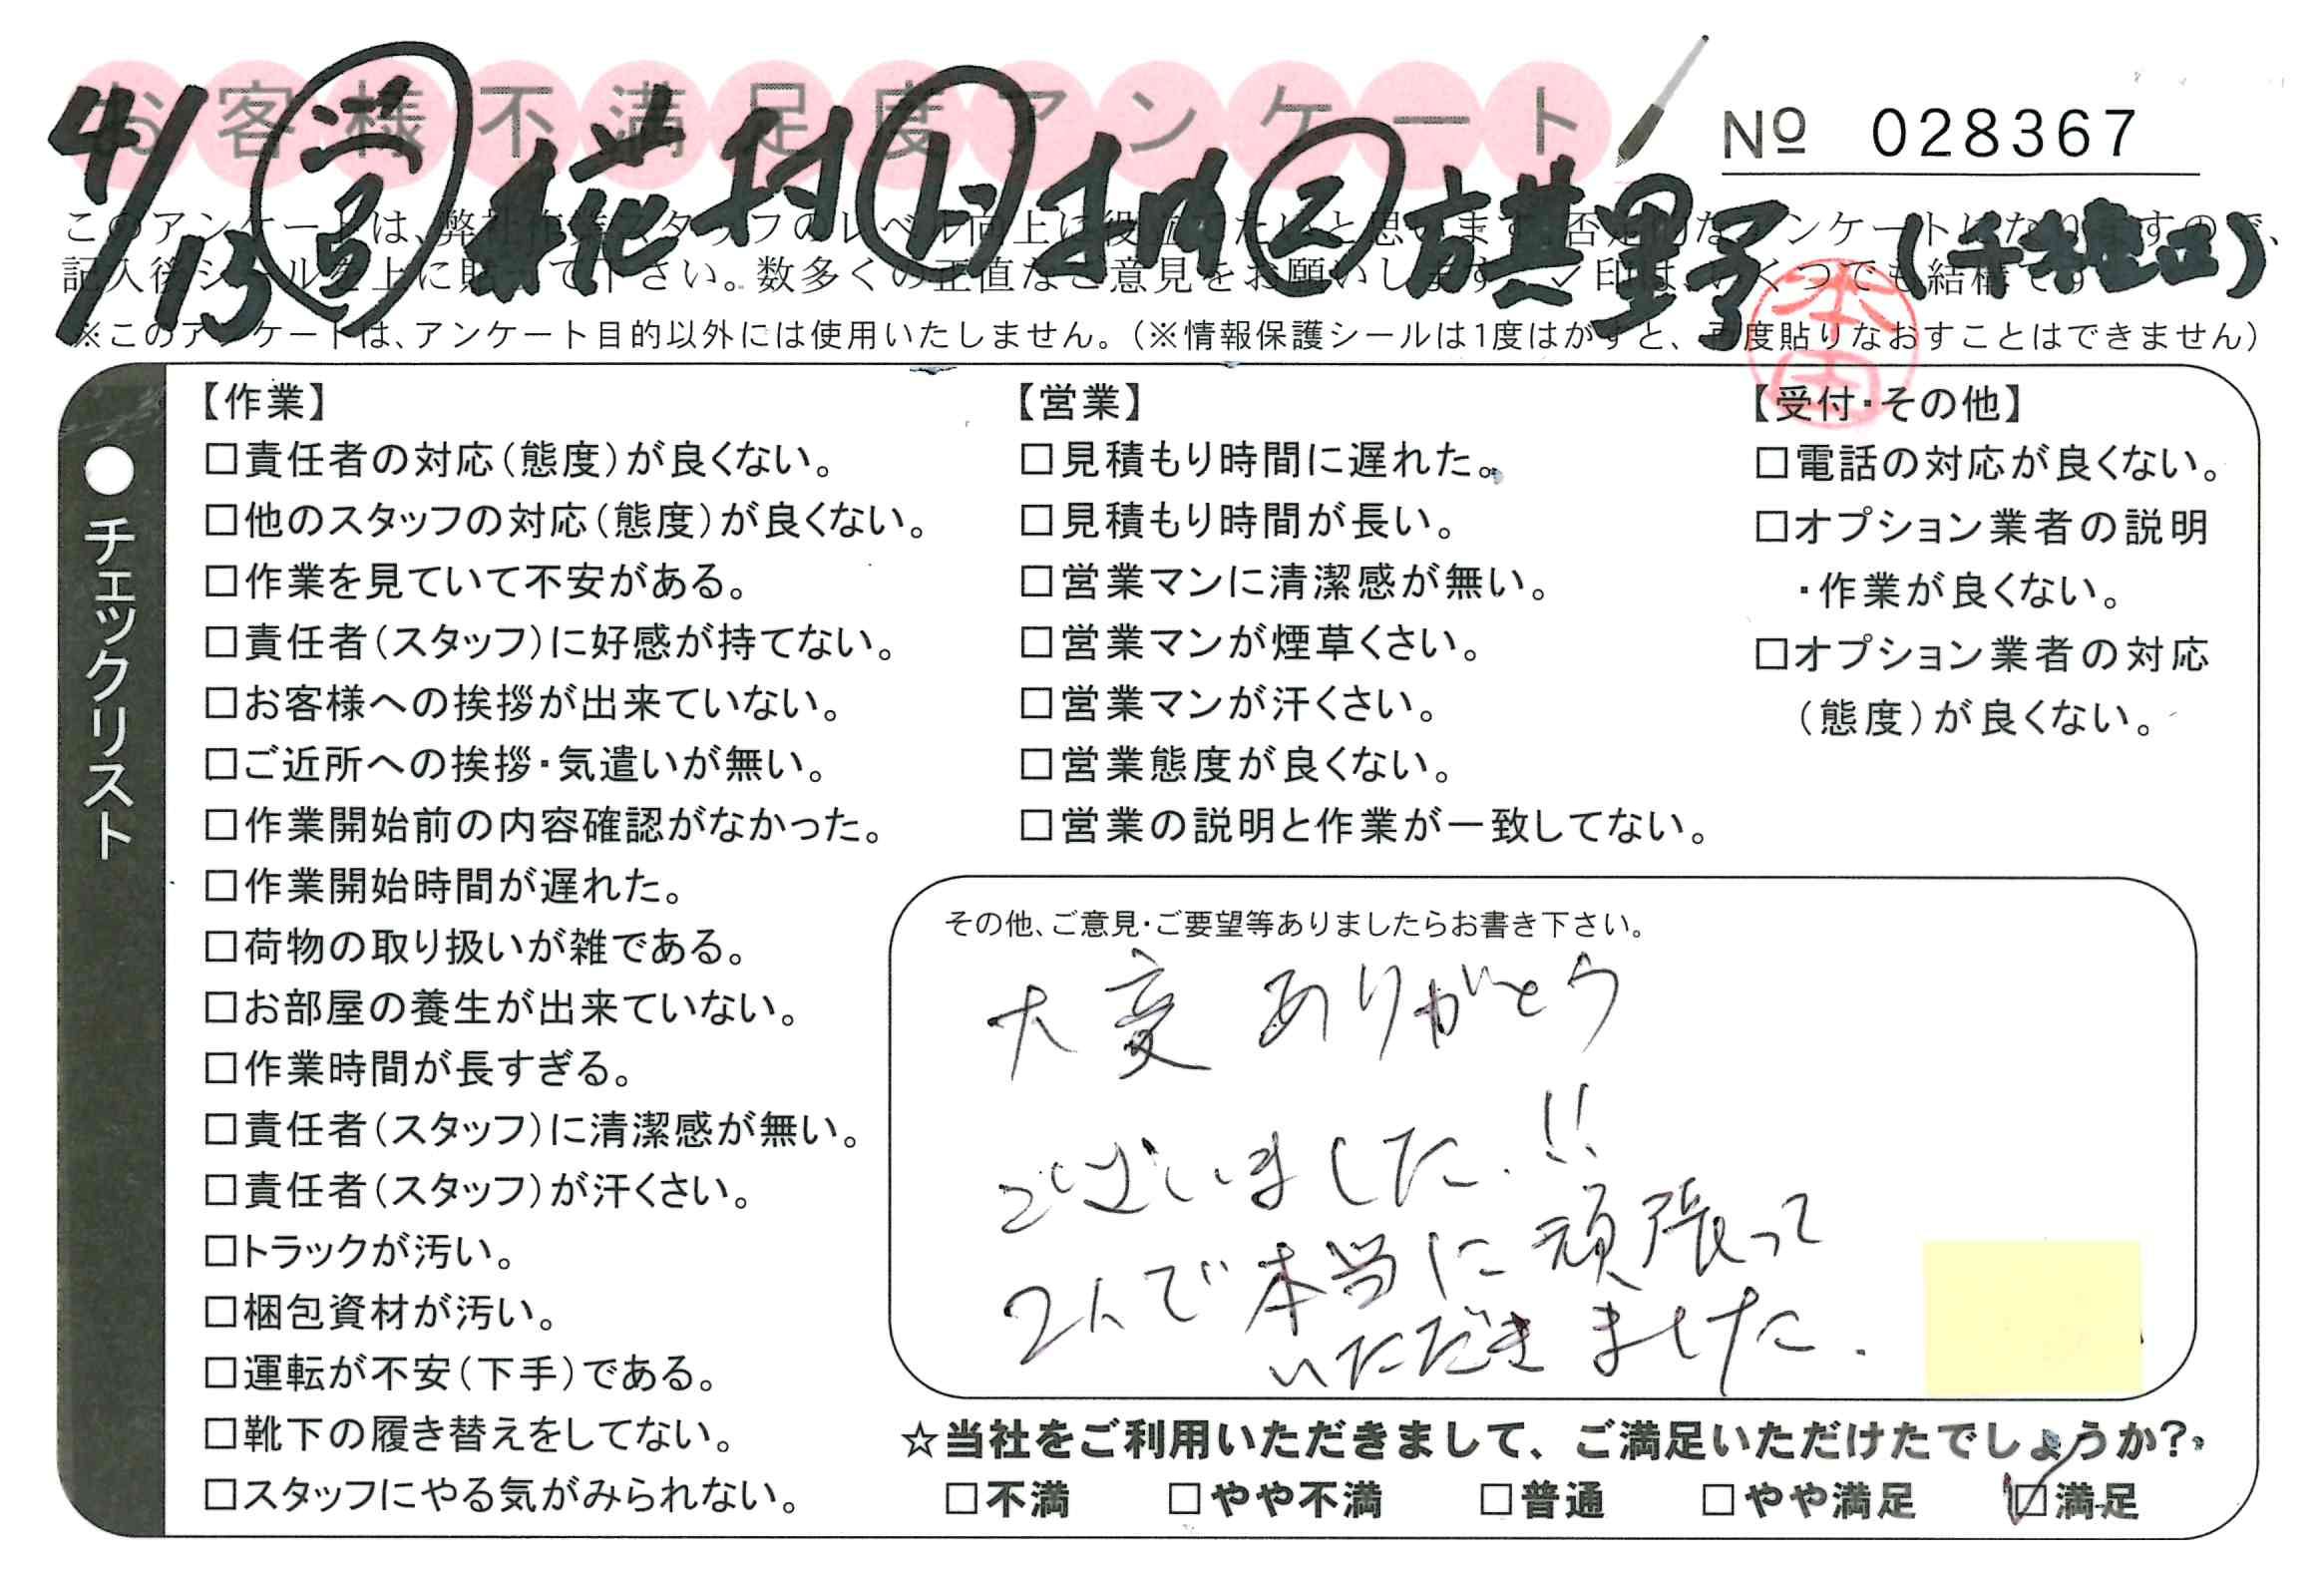 お客様不満足度アンケート
№ 028367
4/13
このアンケートは、弊社作業スタッフのレベル向上に役立てたいと思います。否定的なアンケートになりますので、
記入後シールを上に貼って下さい。数多くの正直なご意見をお願いします。✓印は、いくつでも結構です。
※このアンケートは、アンケート目的以外には使用いたしません。（※情報保護シールは1度はがすと、再度貼りなおすことはできません）
本田
●チェックリスト
【作業】
□責任者の対応（態度）が良くない。
□他のスタッフの対応（態度）が良くない。
□作業を見ていて不安がある。
□責任者（スタッフ）に好感が持てない。
□お客様への挨拶が出来ていない。
□ご近所への挨拶・気遣いが無い。
□作業開始前の内容確認がなかった。
□作業開始時間が遅れた。
□荷物の取り扱いが雑である。
□お部屋の養生が出来ていない。
□作業時間が長すぎる。
□責任者（スタッフ）に清潔感が無い。
□責任者（スタッフ）が汗くさい。
□トラックが汚い。
□梱包資材が汚い。
□運転が不安（下手）である。
□靴下の履き替えをしてない。
□スタッフにやる気がみられない。
【営業】
□見積もり時間に遅れた。
□見積もり時間が長い。
□営業マンに清潔感が無い。
□営業マンが煙草くさい。
□営業マンが汗くさい。
□営業態度が良くない。
□営業の説明と作業が一致してない。
【受付・その他】
□電話の対応が良くない。
□オプション業者の説明
・作業が良くない。
□オプション業者の対応
（態度）が良くない。
その他、ご意見・ご要望等ありましたらお書き下さい。
大変ありがとう
ございました.!!
2人で本当に頑張って
いただきました.
☆当社をご利用いただきまして、ご満足いただけたでしょうか?
□不満 □やや不満 □普通 □やや満足 ☑満足